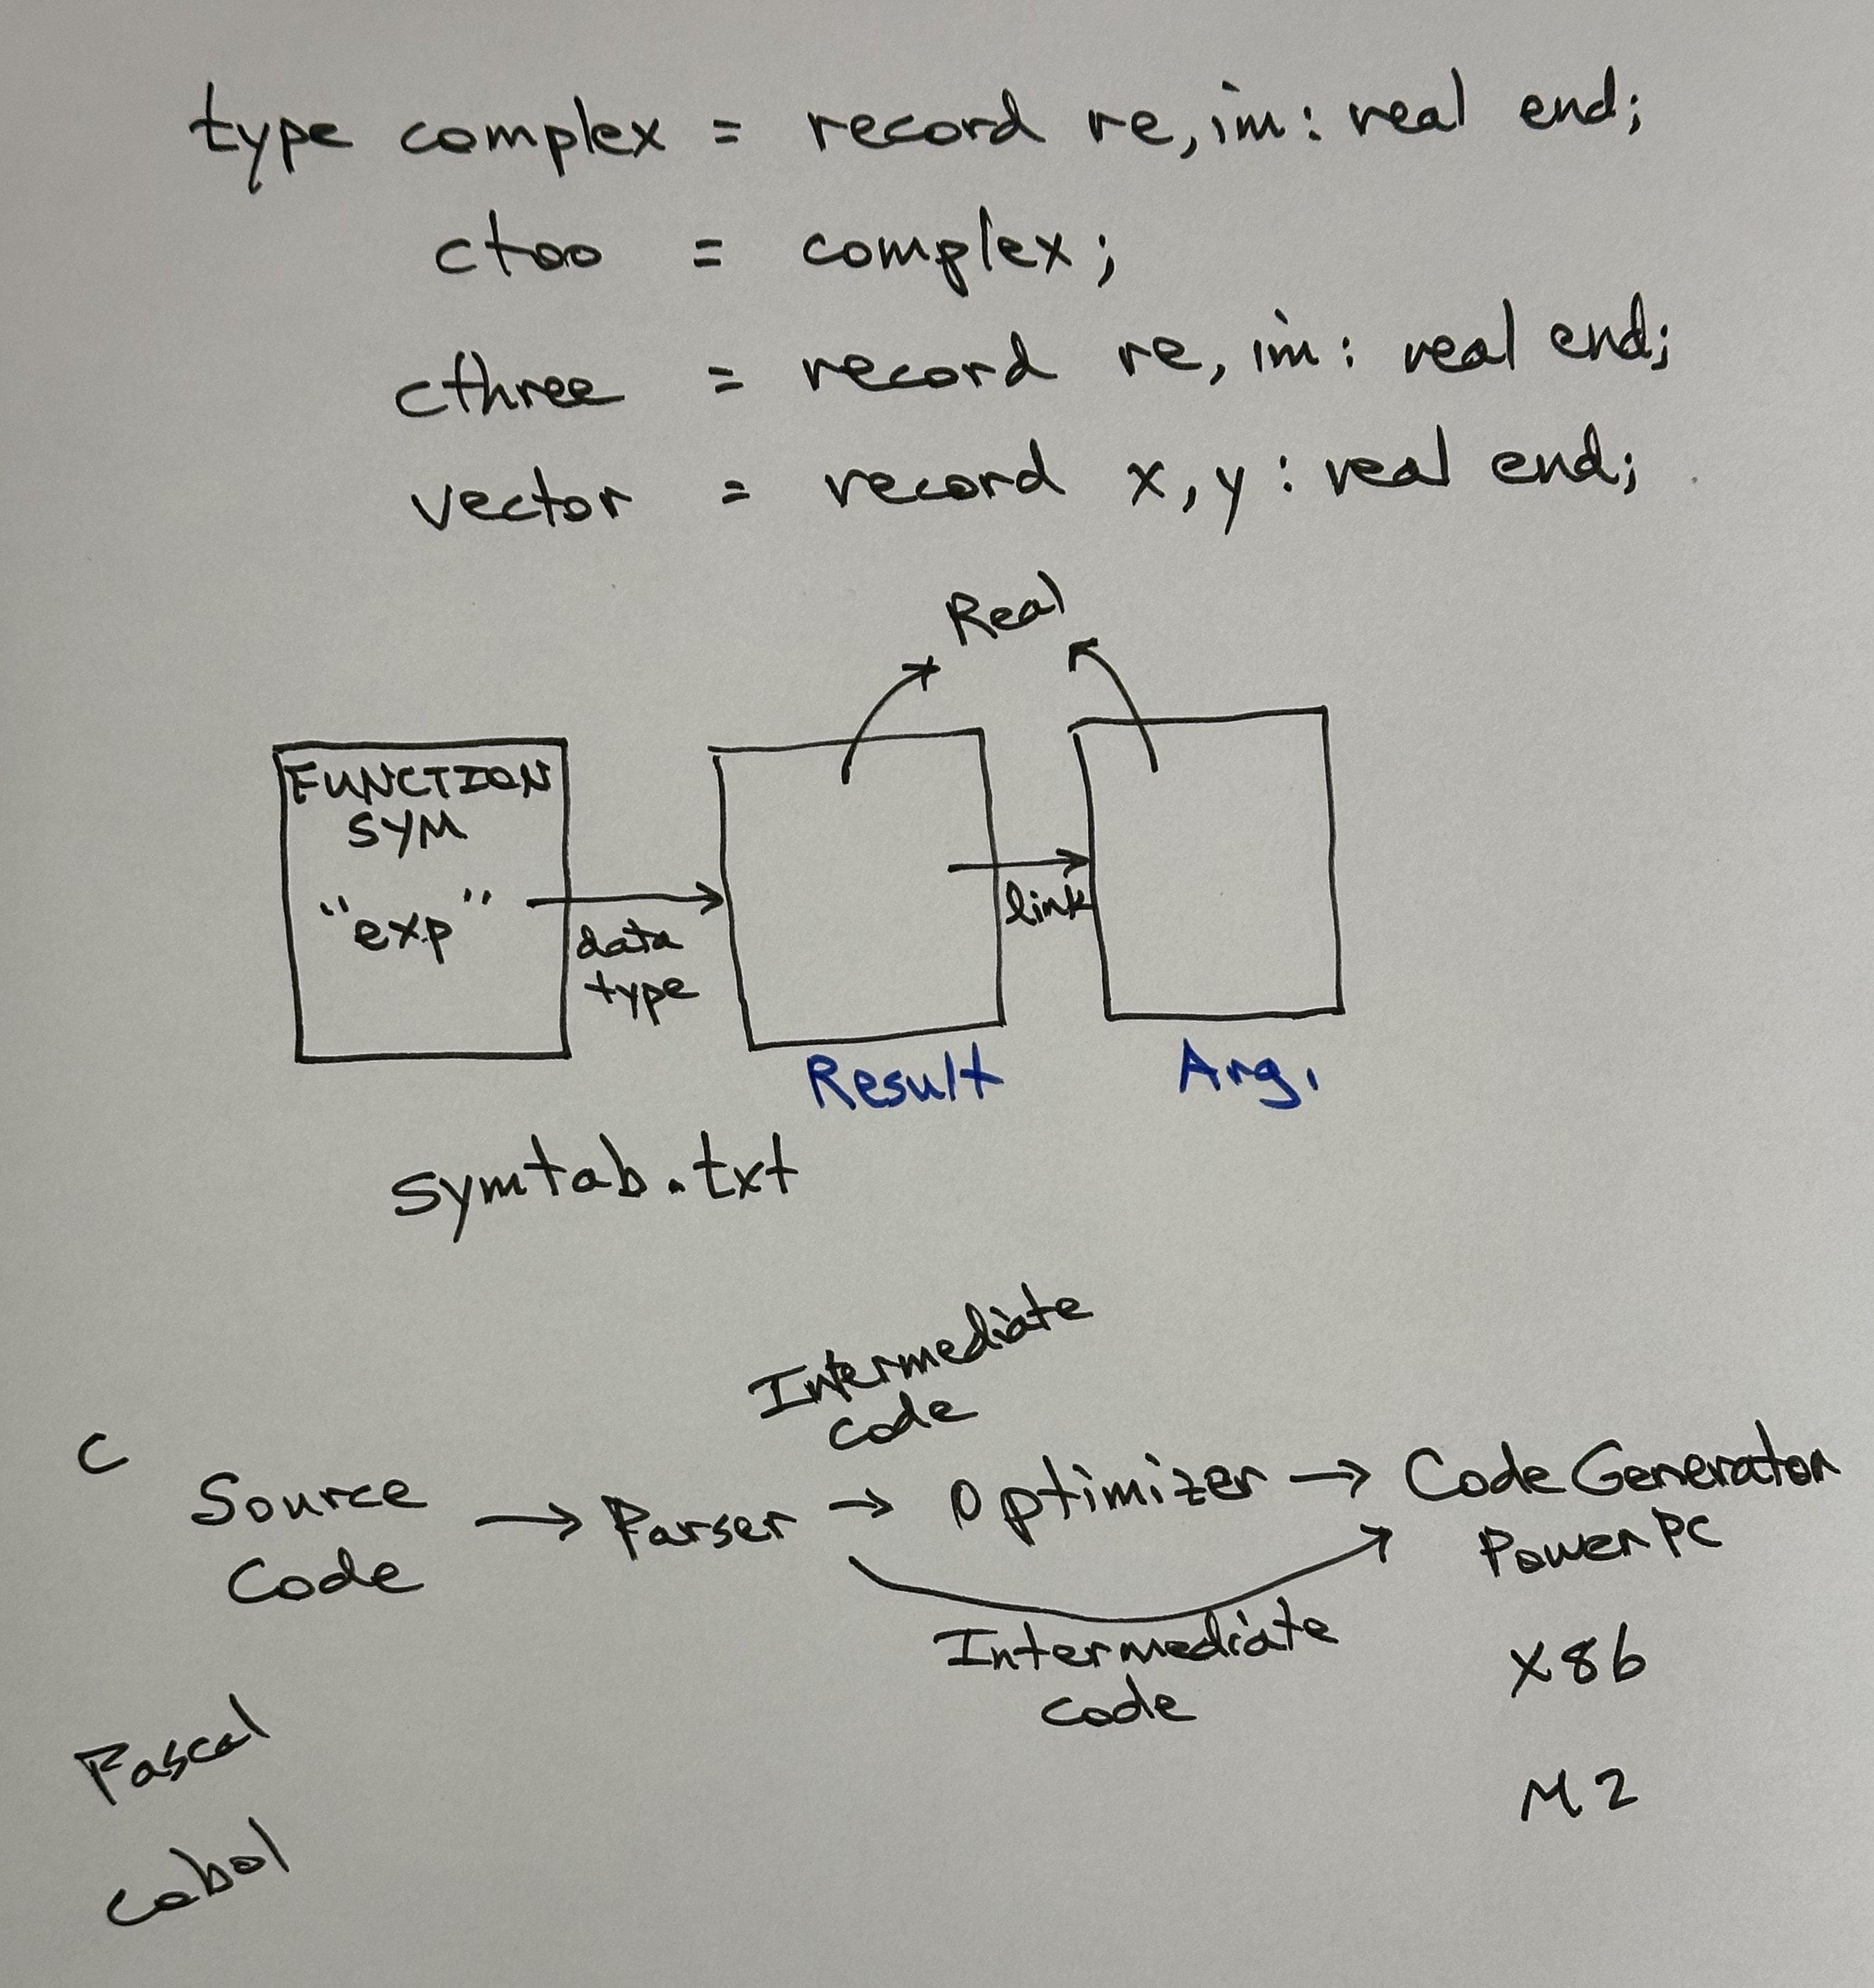 type complex = record re, im : real end;
ctoo = complex;
cthree = record re, im : real end;
vector = record x, y : real end;
Real
FUNCTION
SYM
"exp"
data
type
link
Result
Arg.
symtab.txt
Intermediate
code
C
Source
Code
→ Parser → Optimizer → Code Generator
Power PC
Intermediate
code
x86
Pascal
M2
Cobol